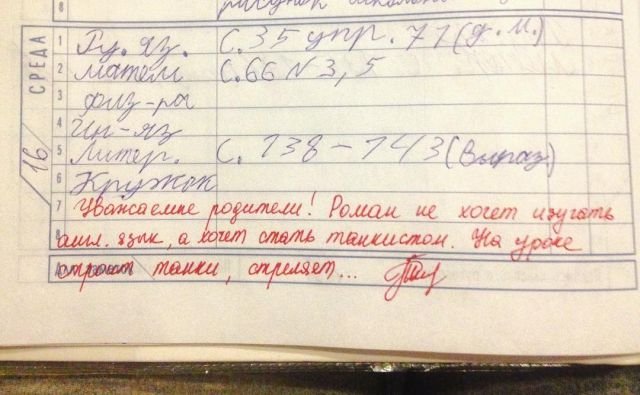 8
рисунок
СРЕДА
16
1 Ру. яз. С. 35 упр. 71 (д.м.)
2 матем С. 66 N 3, 5
3 физ-ра
4 Ин-яз
5 Литер. С. 138 – 143 (Выраз)
6 Кружок
7 Уважаемые родители! Роман не хочет изучать
8 англ. язык, а хочет стать танкистом. На уроке
строит танки, стреляет...